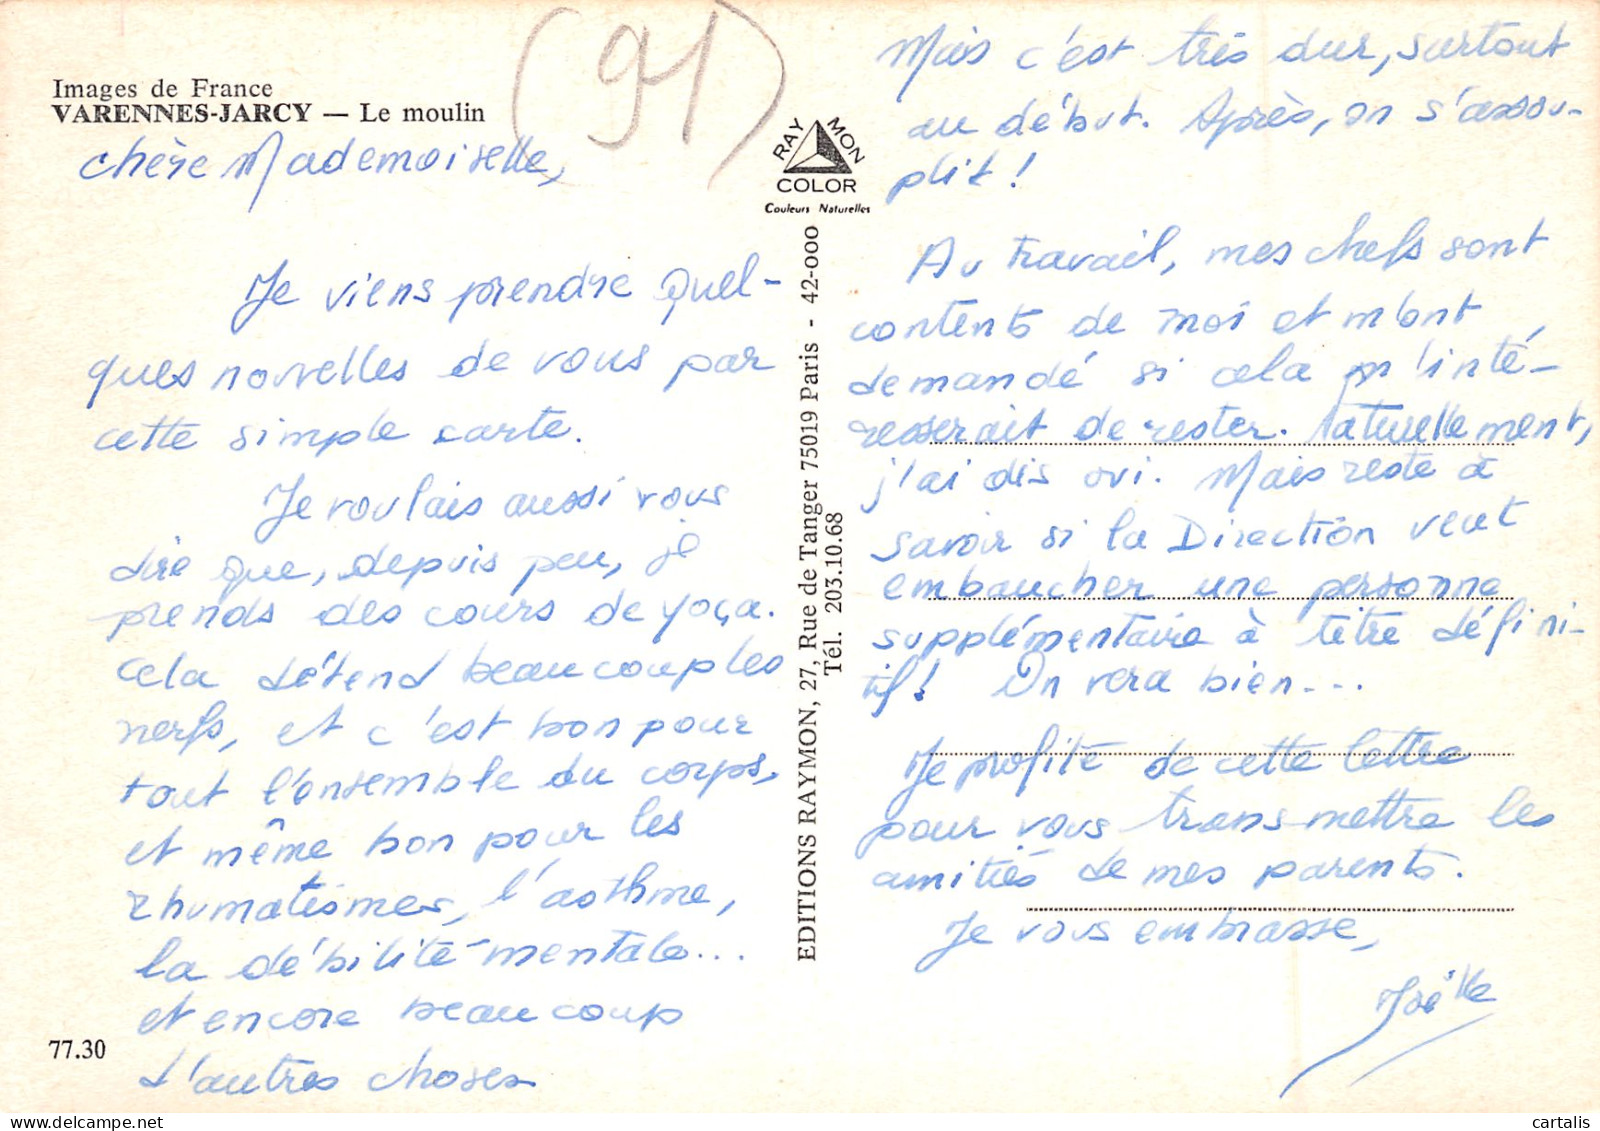 Images de France
VARENNES-JARCY — Le moulin
(91)
RAYMON
COLOR
Couleurs Naturelles
chère Mademoiselle,
Je viens prendre quel-
ques nouvelles de vous par
cette simple carte.
Je voulais aussi vous
dire que, depuis peu, je
prends des cours de yoga.
Cela détend beaucoup les
nerfs, et c'est bon pour
tout l'ensemble du corps,
et même bon pour les
rhumatismes, l'asthme,
la débilité mentale...
et encore beaucoup
d'autres choses
77.30
EDITIONS RAYMON, 27, Rue de Tanger 75019 Paris - 42-000
Tél. 203.10.68
Mais c'est très dur, surtout
au début. Après, on s'assou-
plit !
Au travail, mes chefs sont
contents de moi et m'ont
demandé si cela m'inté-
resserait de rester. Naturellement,
j'ai dis oui. Mais reste à
savoir si la Direction veut
embaucher une personne
supplémentaire à titre défini-
tif ! On vera bien...
Je profite de cette lettre
pour vous transmettre les
amitiés de mes parents.
Je vous embrasse,
Joëlle
cartalis